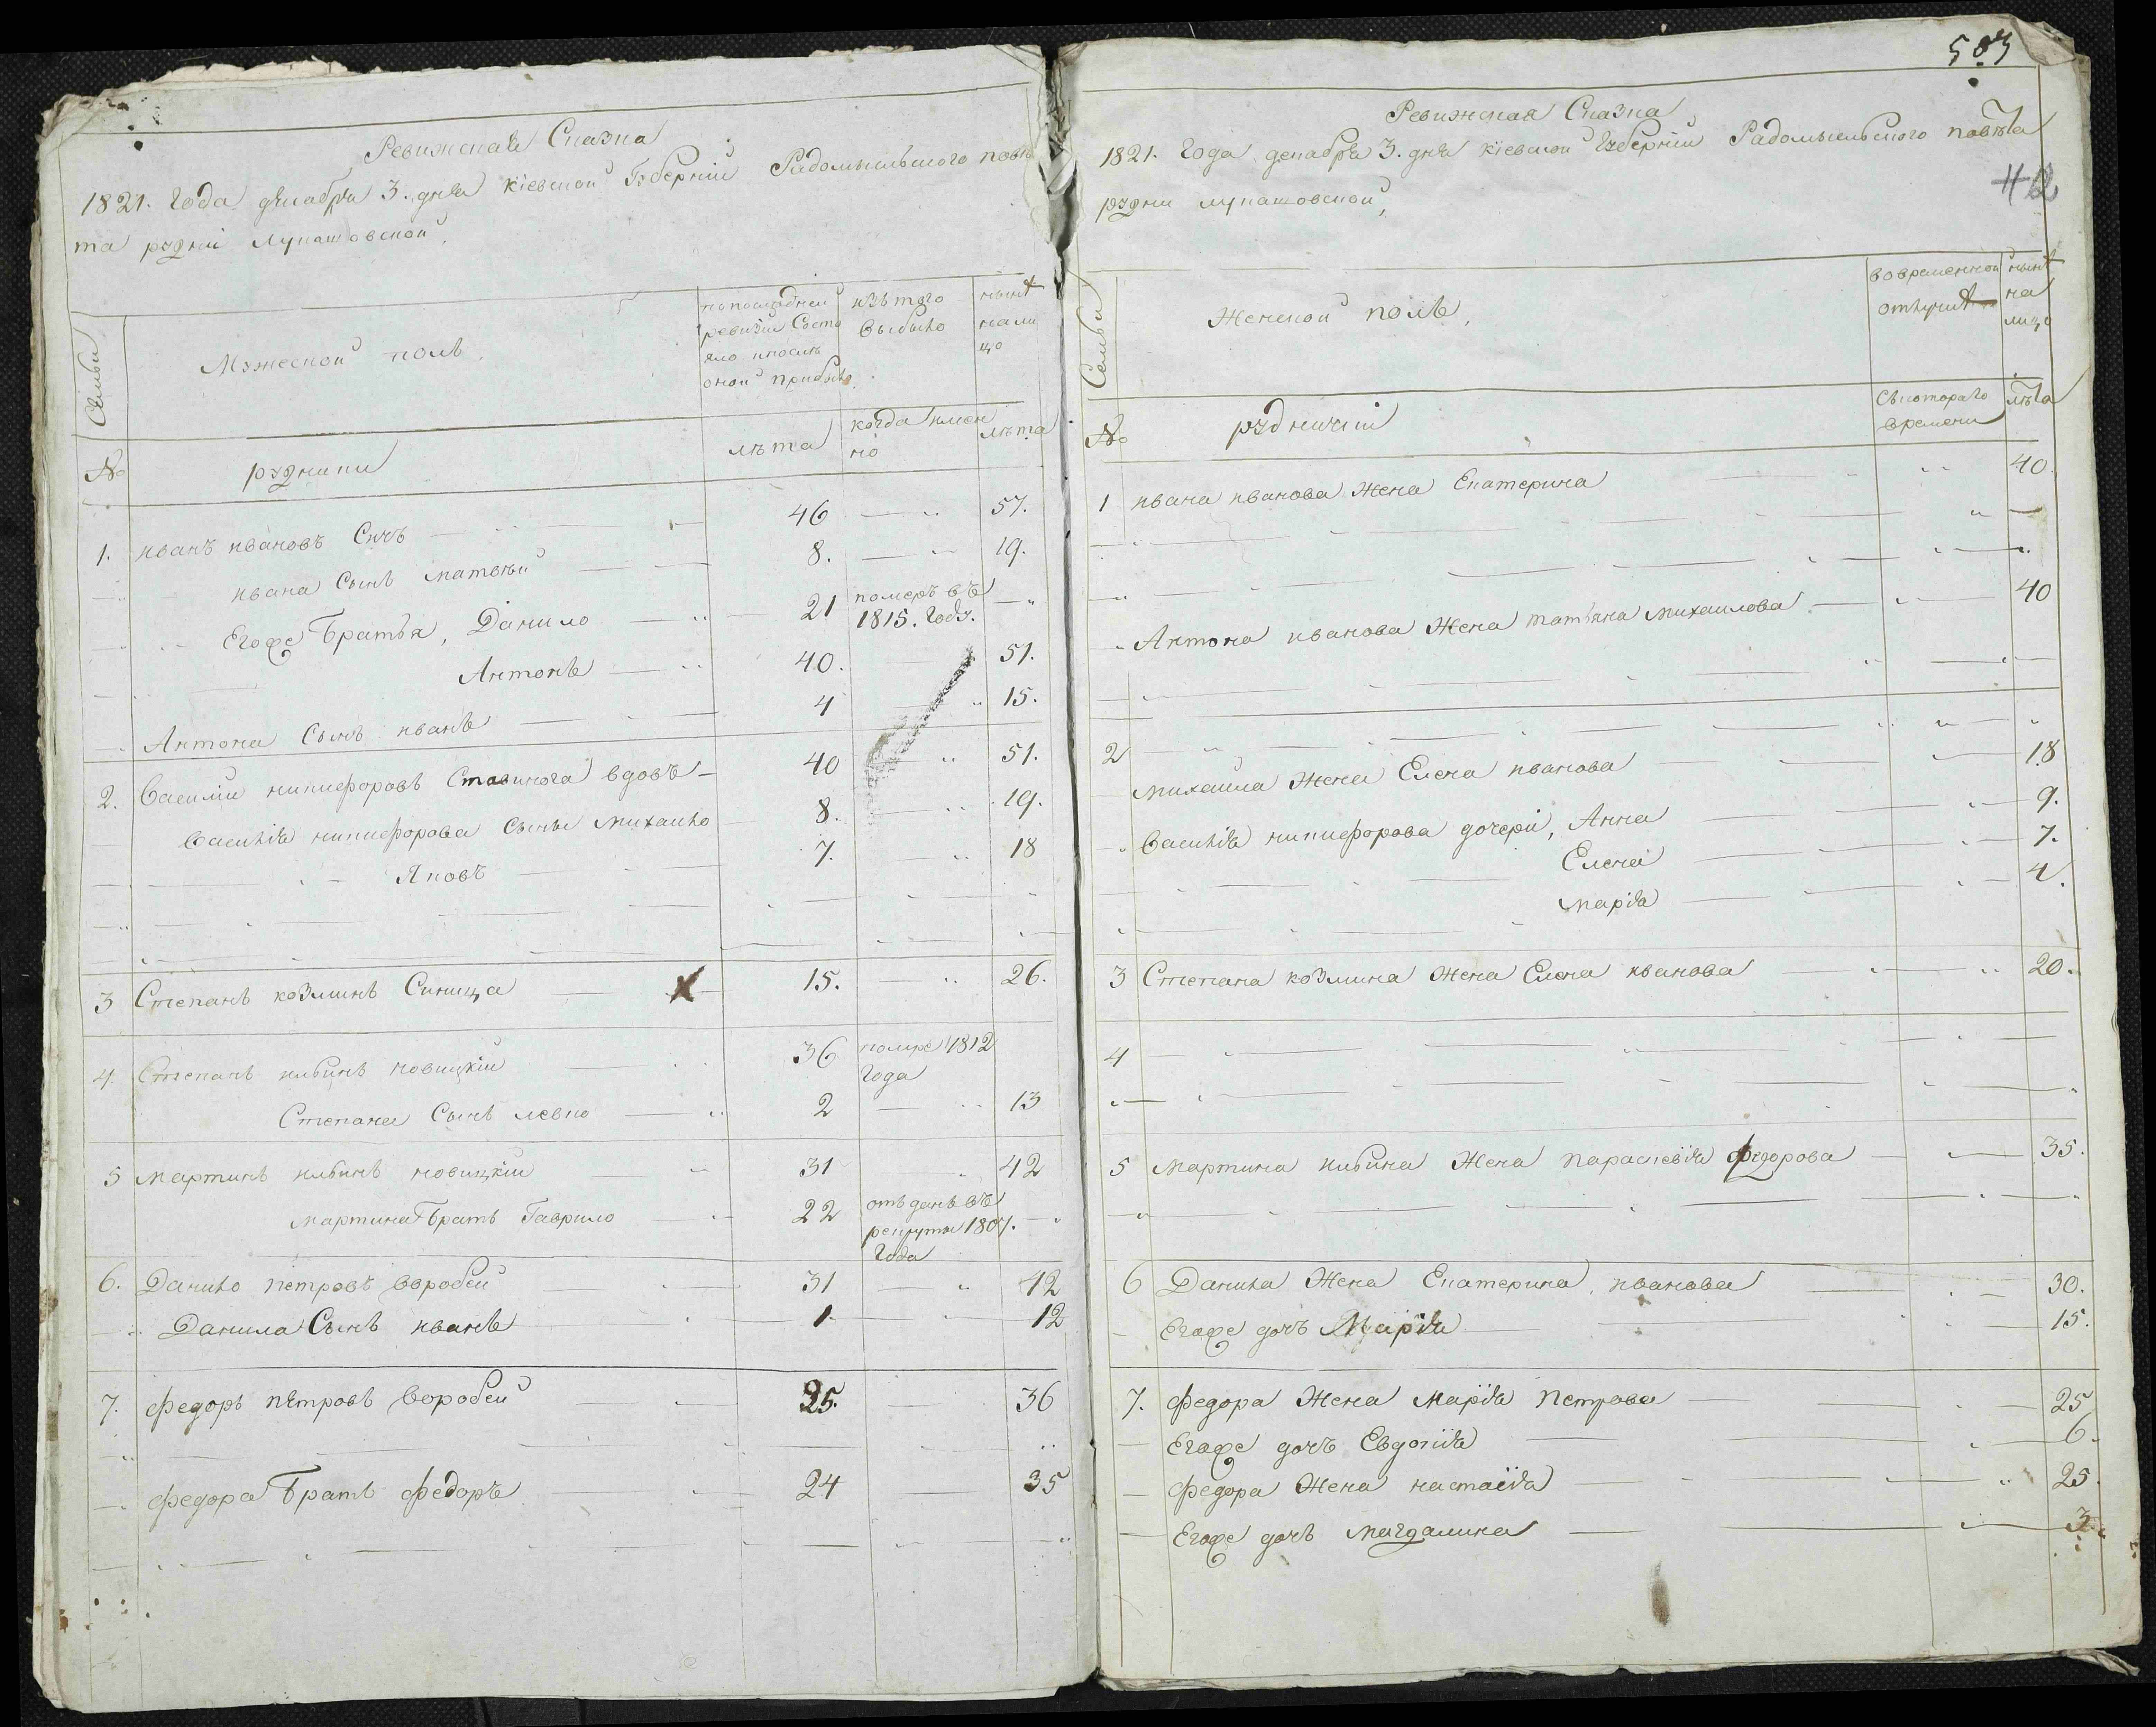 Ревижская Сказка
1821. Года декабря 3. дня кіевской Губерніи Радомысльского повѣ
та рудни Лукашовской,
Семьи
Мужеской полъ,
по последней ревизіи Состояло и после оной прибыло
изъ того выбыло
нынѣ на лицо
№
рудники
лѣта
когда имен но
лѣта
1. иванъ ивановъ Сичъ 46 57.
ивана Сынъ матвѣй 8. 19.
Егоже Братья, Данило 21 померъ въ 1815. году.
Антонъ 40. 51.
Антона Сынъ иванъ 4 15.
2. Василий никифоровъ Ставинога вдовъ 40 51.
Василія никифорова Сыны михайло 8. 19.
Яковъ 7. 18
3 Степанъ козминъ Синица 15. 26.
4. Степанъ ильинъ новицкій 36 помре 1812 года
Степана Сынъ левко 2 13
5 мартинъ ильинъ новицкій 31 42
мартина Братъ Гаврило 22 отъданъ въ рекруты 1807. года
6. Данило петровъ воробей 31 42
Данила Сынъ иванъ 1 12
7. федоръ петровъ воробей 25. 36
федора Братъ федоръ 24 35
503
Ревижская Сказка
1821. Года декабря 3. дня кіевской Губерніи Радомысльского повѣта
42
рудни лукашовской,
Семьи
Женской полъ,
во временной отлучкѣ
нынѣ на лицо
№
рудничіи
Съ котораго времени
лѣта
1 ивана иванова жена Екатерина 40.
Антона иванова жена татьяна михайлова 40
2
михайла жена Елена иванова 18
Василія никифорова дочери, Анна 9.
Елена 7.
марія 4.
3 Степана козмина жена Елена иванова 20.
4
5 мартина ильина жена параскевія федорова 35.
6 Данила жена Екатерина иванова 30.
Егоже дочь Марія 15.
7. федора жена марія петрова 25
Егоже дочь Евдокія 6.
федора жена настасія 25.
Егоже дочь магдалина 3.